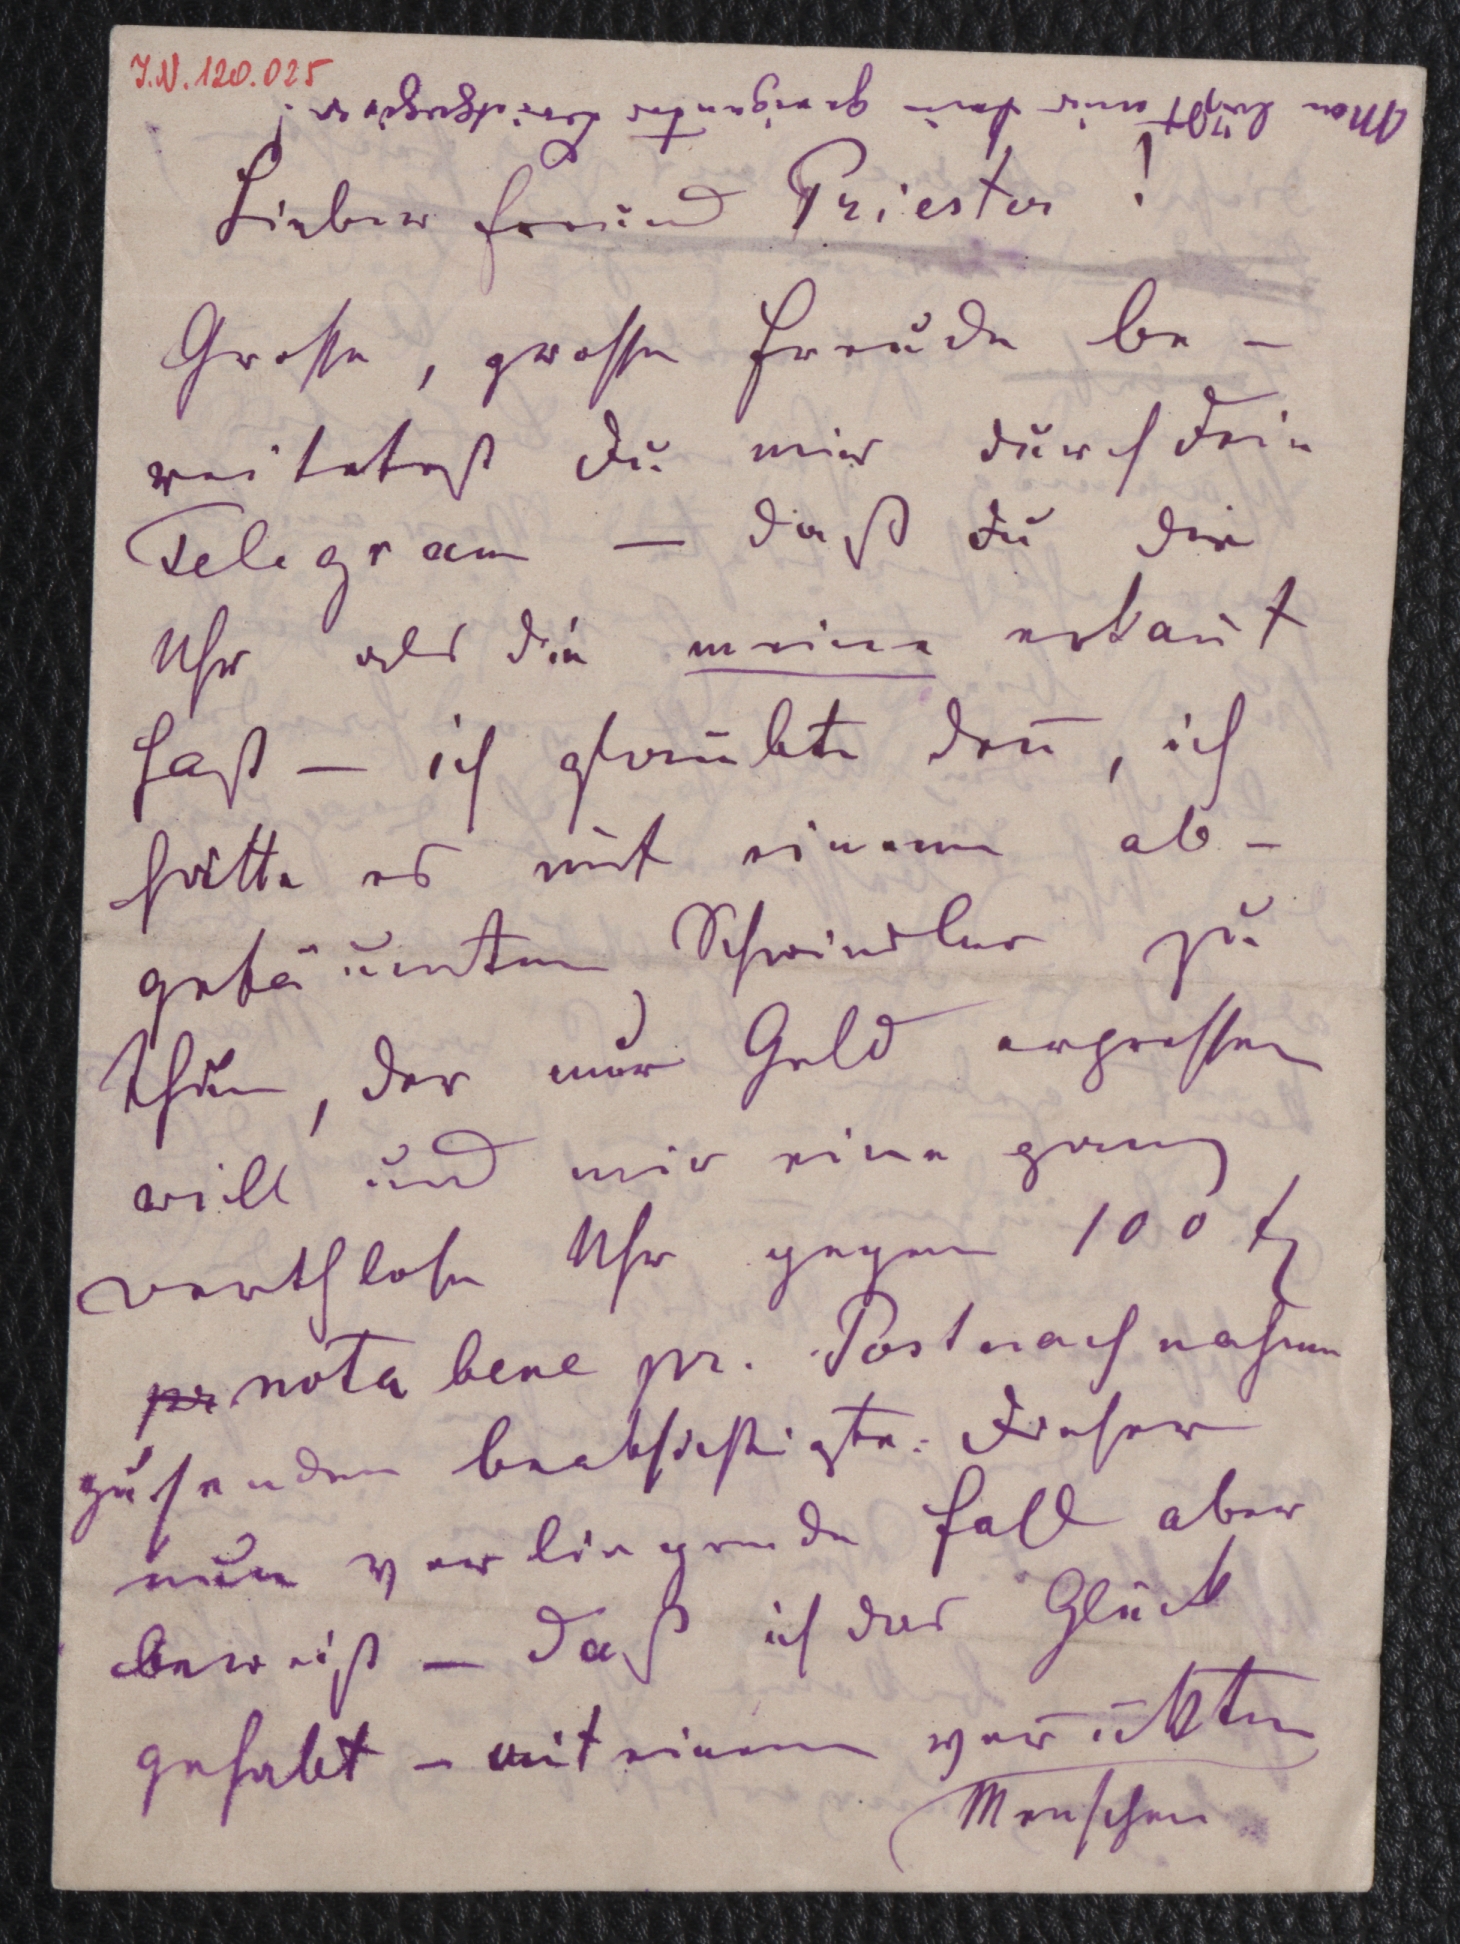 I.N. 120.025
Man läßt mir kein geeigneter
Lieber Freund Priester!
Grosse, grosse Freude be-
reitetest Du mir durch Dein
Telegram — daß Du die
Uhr als die meine erkant
hast — ich glaubte den̅, ich
hätte es mit einem ab-
gefäumten Schwindler zu
thun, der nur Geld erpressen
will und mir eine ganz
werthlose Uhr gegen 100 f
pr nota bene pr. Postnachnahme
zusenden beabsichtigte. Dieser
nun vorliegende Fall aber
beweist — daß ich das Glück
gehabt — mit einem verückten
Menschen